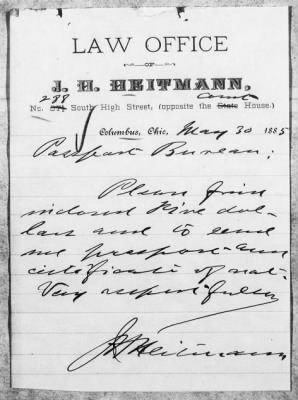 LAW OFFICE
OF
J. H. HEITMANN,
Court
No. 288 South High Street, (opposite the State House.)
Columbus, Ohio, May 30 1885
Passport Bureau;
Please find
inclosed Five dol-
lars and to send
me passport and
certificate of nat.
Very respectfully
J H Heitmann